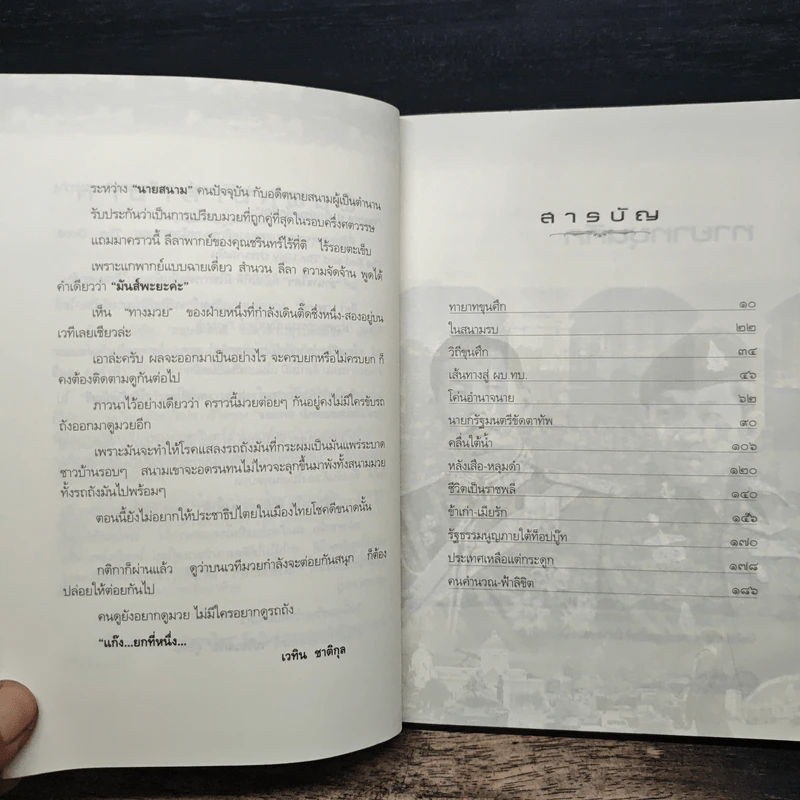 ระหว่าง "นายสนาม" คนปัจจุบัน กับอดีตนายสนามผู้เป็นตำนาน
รับประกันว่าเป็นการเปรียบมวยที่ถูกคู่ที่สุดในรอบครึ่งศตวรรษ
แถมมาคราวนี้ ลีลาพากย์ของคุณชรินทร์ไร้ที่ติ ไร้รอยตะเข็บ
เพราะแกพากย์แบบฉายเดี่ยว สำนวน ลีลา ความจัดจ้าน พูดได้
คำเดียวว่า "มันส์พะยะค่ะ"
เห็น "ทางมวย" ของฝ่ายหนึ่งที่กำลังเดินติ๊ดซึ่งหนึ่ง-สองอยู่บน
เวทีเลยเชียวล่ะ
เอาล่ะครับ ผลจะออกมาเป็นอย่างไร จะครบยกหรือไม่ครบยก ก็
คงต้องติดตามดูกันต่อไป
ภาวนาไว้อย่างเดียวว่า คราวนี้มวยต่อยๆ กันอยู่คงไม่มีใครขับรถ
ถังออกมาดูมวยอีก
เพราะมันจะทำให้โรคแสลงรถถังมันที่กระผมเป็นมันแพร่ระบาด
ชาวบ้านรอบๆ สนามเขาจะอดรนทนไม่ไหวจะลุกขึ้นมาพังทั้งสนามมวย
ทั้งรถถังมันไปพร้อมๆ
ตอนนี้ยังไม่อยากให้ประชาธิปไตยในเมืองไทยโชคดีขนาดนั้น
กติกาก็ผ่านแล้ว ดูว่าบนเวทีมวยกำลังจะต่อยกันสนุก ก็ต้อง
ปล่อยให้ต่อยกันไป
คนดูยังอยากดูมวย ไม่มีใครอยากดูรถถัง
"แก๊ง...ยกที่หนึ่ง...
เวทิน ชาติกุล
สารบัญ
ทายาทขุนศึก ๑๐
ในสนามรบ ๒๒
วิถีขุนศึก ๓๔
เส้นทางสู่ ผบ.ทบ. ๔๖
โค่นอำนาจนาย ๖๒
นายกรัฐมนตรีขัดตาทัพ ๙๐
คลื่นใต้น้ำ ๑๐๖
หลังเสือ-หลุมดำ ๑๒๐
ชีวิตเป็นราชพลี ๑๔๐
ข้าเก่า-เมียรัก ๑๕๖
รัฐธรรมนูญภายใต้ท็อปบู๊ท ๑๗๐
ประเทศเหลือแต่กระดูก ๑๗๘
คนคำนวณ-ฟ้าลิขิต ๑๘๖